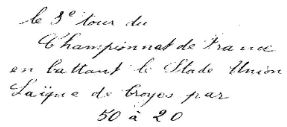 le 3e tour du
Championnat de France
en battant le Stade Union
Laïque de Troyes par
50 à 20